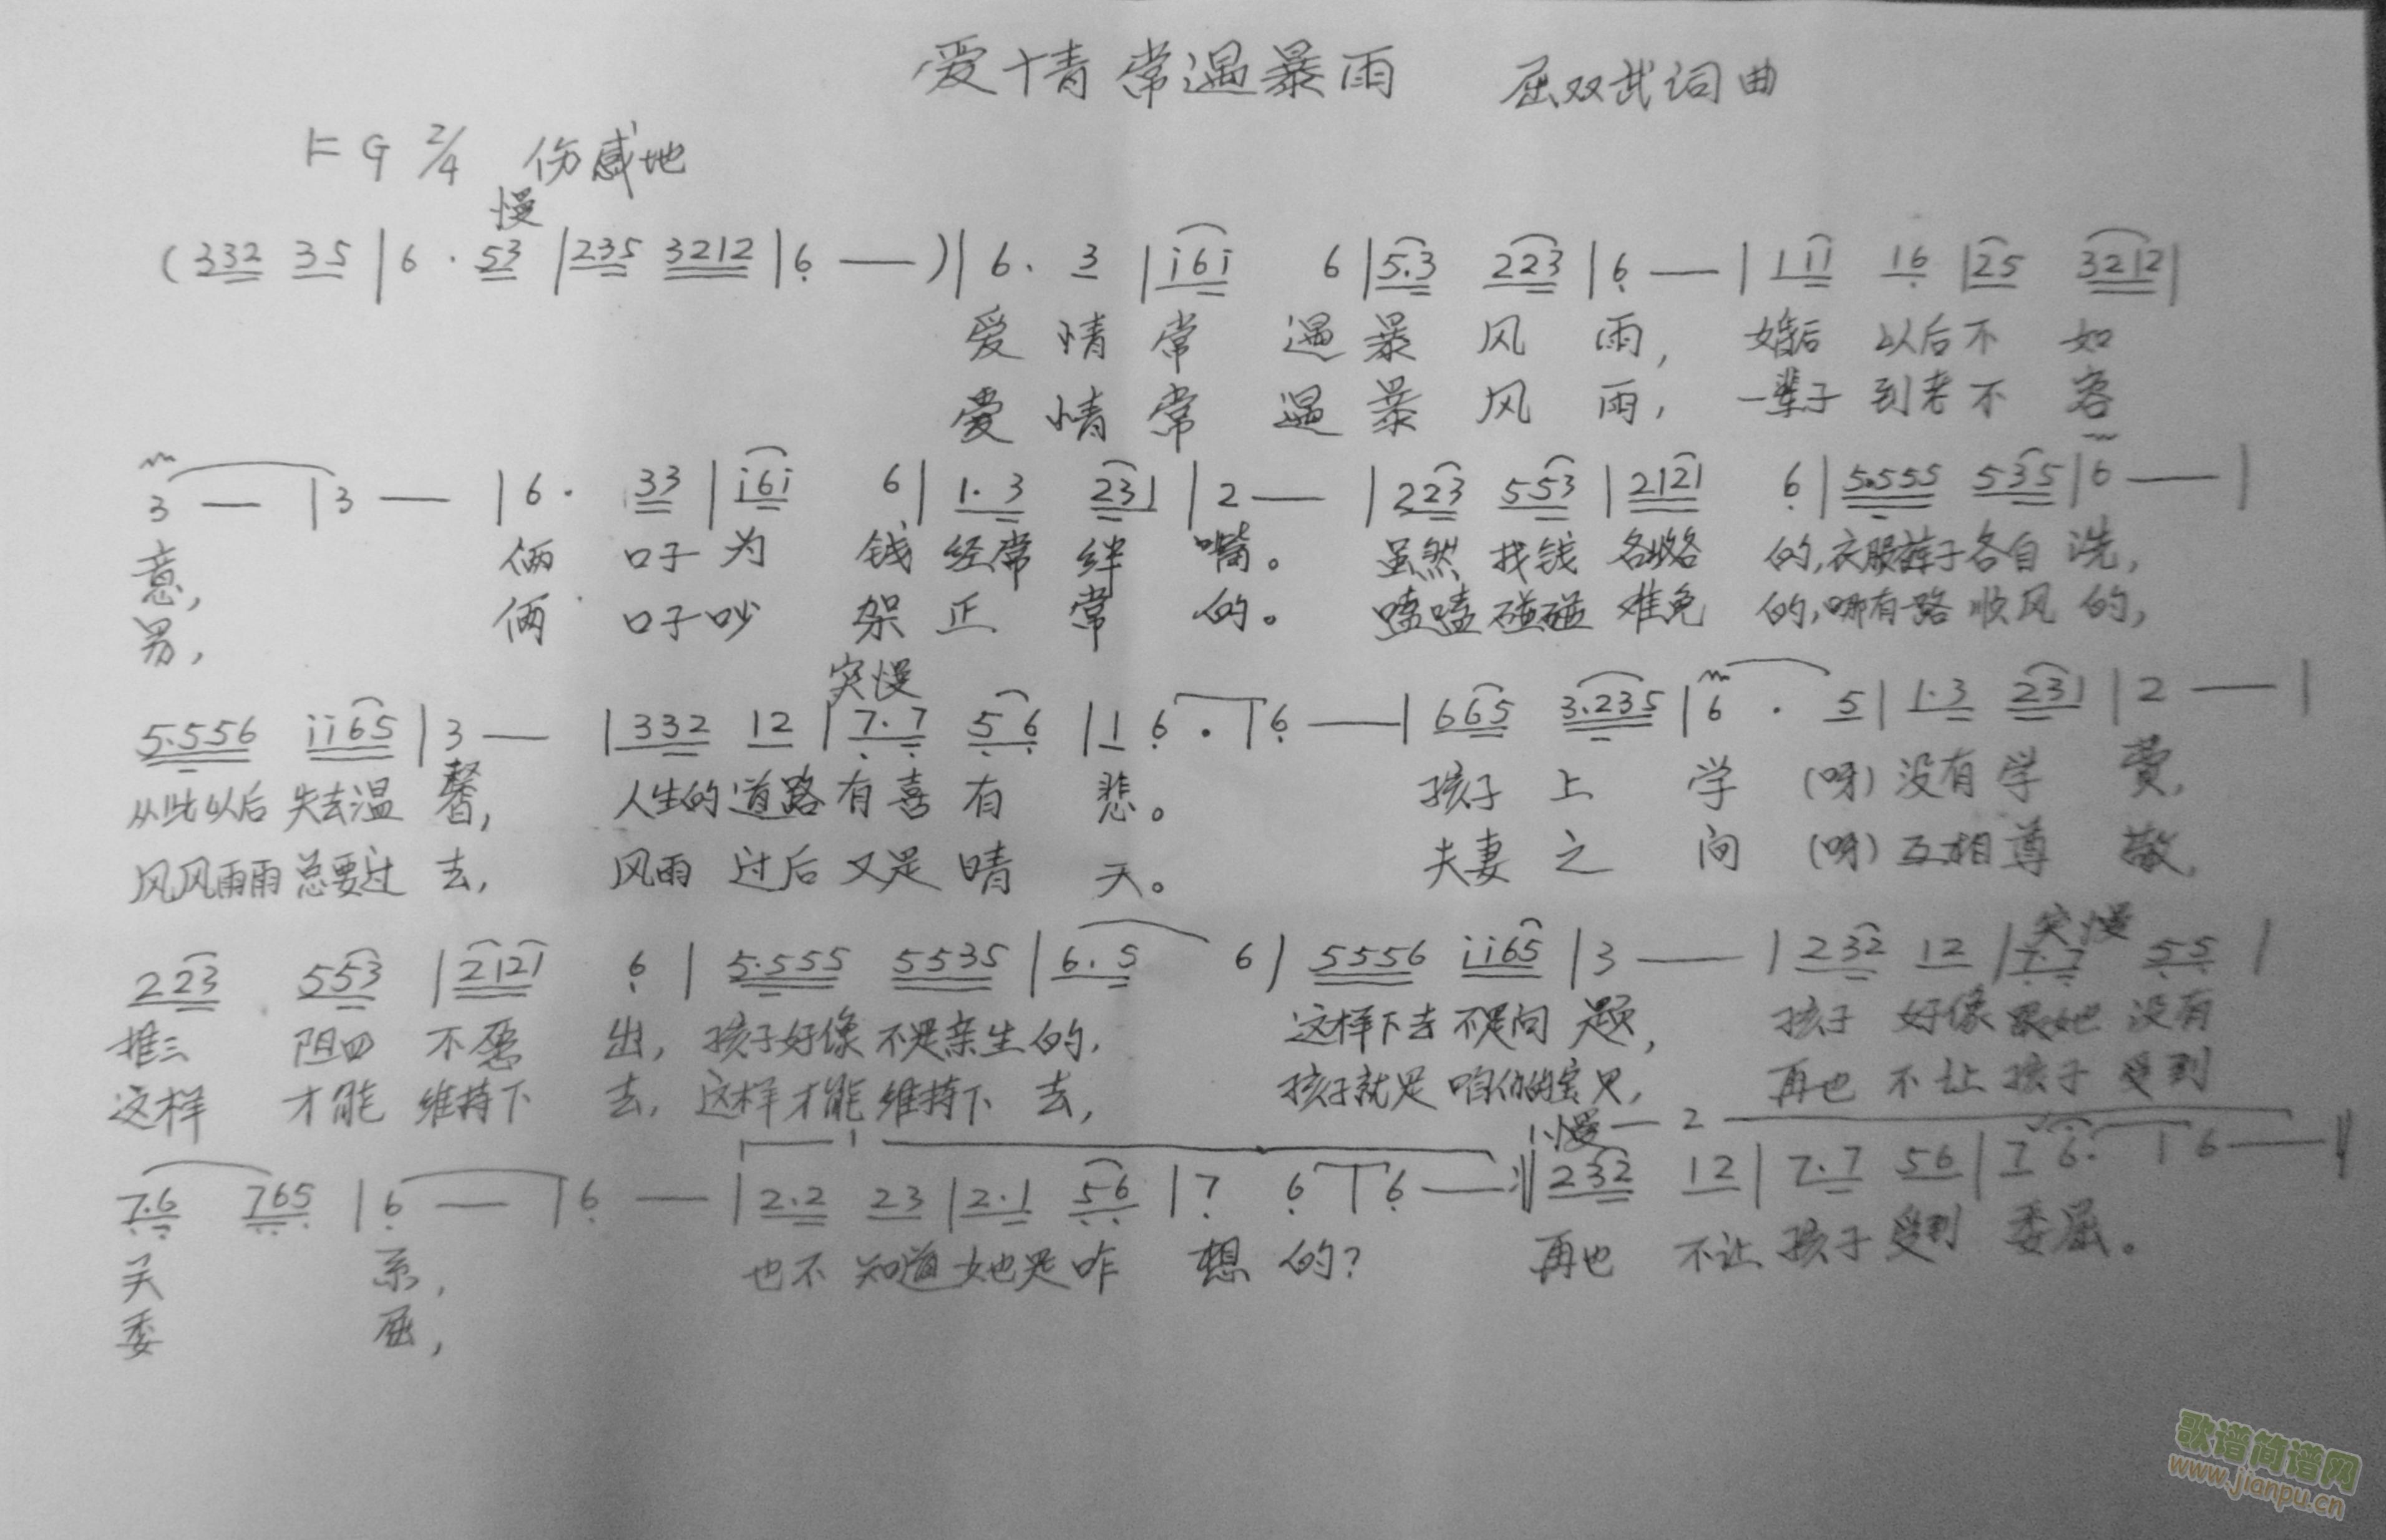 爱情常遇暴雨 屈双武词曲
1=G 2/4 伤感地
慢
(332 35|6·53|235 3212|6—)|6·3|i6i 6|5.3 223|6—|1ii 16|25 3212|
爱情常遇暴风雨,婚后以后不如
爱情常遇暴风雨,一辈子到老不容
3—|3—|6·33|i6i 6|1.3 231|2—|223 553|2121 6|5.555 535|6—|
意,俩口子为钱经常绊嘴。虽然找钱各攺各的,衣服裤子各自洗,
男,俩口子吵架正常的。嗑嗑碰碰难免的,哪有一路顺风的,
突慢
5.556 ii65|3—|332 12|7.7 56|1 6·|6—|665 3.235|6·5|1.3 231|2—|
从此以后失去温馨,人生的道路有喜有悲。孩子上学(呀)没有学费,
风风雨雨总要过去,风雨过后又是晴天。夫妻之间(呀)互相尊敬,
突慢
223 553|2121 6|5.555 5535|6.5 6|5556 ii65|3—|232 12|7.7 55|
推三阻四不愿出,孩子好像不是亲生的,这样下去不是问题,孩子好像跟她没有
这样才能维持下去,这样才能维持下去,孩子就是咱们的宝贝,再也不让孩子受到
1 慢 2
7.6 765|6—|6—|2.2 23|2.1 56|7 6|6—:‖232 12|7.7 56|7 6·|6—‖
关系,也不知道她是咋想的?再也不让孩子受到委屈。
委屈,
歌谱简谱网
www.jianpu.cn